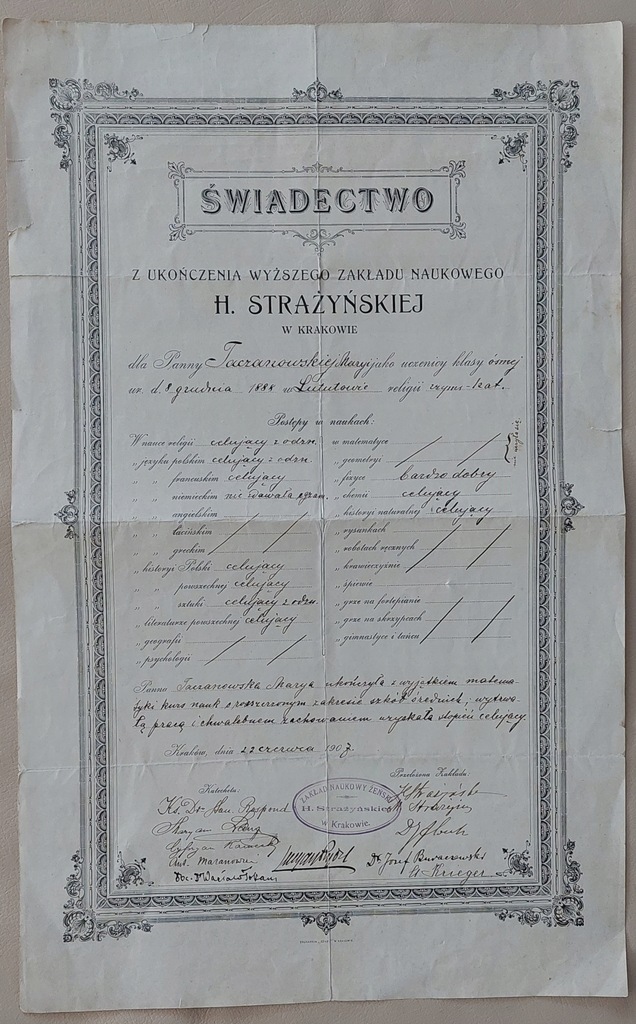 ŚWIADECTWO
Z UKOŃCZENIA WYŻSZEGO ZAKŁADU NAUKOWEGO
H. STRAŻYŃSKIEJ
W KRAKOWIE
dla Panny Taczanowskiej Maryi jako uczenicy klasy ósmej
ur. d. 8 grudnia 1888 w Lututowie religii rzyms-kat.
Postępy w naukach:
W nauce religii celujący z odzn.
„ języku polskim celujący z odzn.
„ „ francuskim celujący
„ „ niemieckim nie zdawała egzam.
„ „ angielskim
„ „ łacińskim
„ „ greckim
„ historyi Polski celujący
„ „ powszechnej celujący
„ „ sztuki celujący z odzn.
„ literaturze powszechnej celujący
„ geografii
„ psychologii
w matematyce
„ geometryi
„ fizyce bardzo dobry
„ chemii celujący
„ historyi naturalnej celujący
„ rysunkach
„ robotach ręcznych
„ krawieczyźnie
„ śpiewie
„ grze na fortepianie
„ grze na skrzypcach
„ gimnastyce i tańcu
Panna Taczanowska Marya ukończyła z wyjątkiem matema-
tyki kurs nauk w rozszerzonym zakresie szkół średnich; wytrwa-
łą pracą i chwalebnem zachowaniem uzyskała stopień celujący.
Kraków, dnia 22 czerwca 1907.
Katecheta:
Ks. Dr. Stan. Rospond
Przełożona Zakładu:
H. Strażyńska
ZAKŁAD NAUKOWY ŻEŃSKI
H. Strażyńskiej
w Krakowie.
Dr Józef
St. Krieger